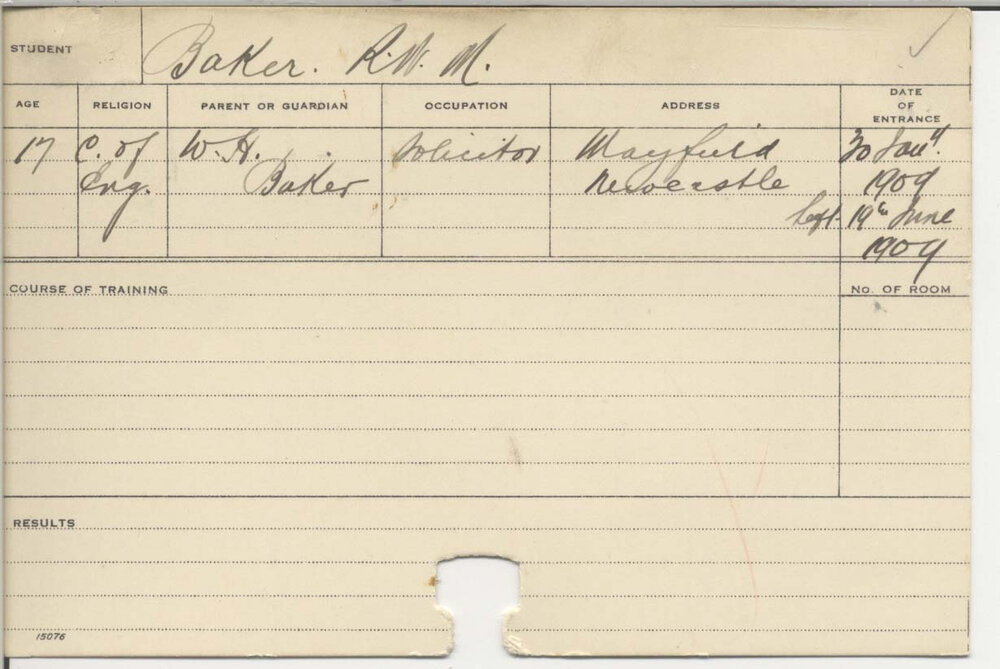 STUDENT
Baker. R.W.M.
AGE
RELIGION
PARENT OR GUARDIAN
OCCUPATION
ADDRESS
DATE
OF
ENTRANCE
17
C. of
Eng.
W. H.
Baker
Solicitor
Mayfield
Newcastle
20 Jany.
1909
left 19th June
1909
COURSE OF TRAINING
No. OF ROOM
RESULTS
15076